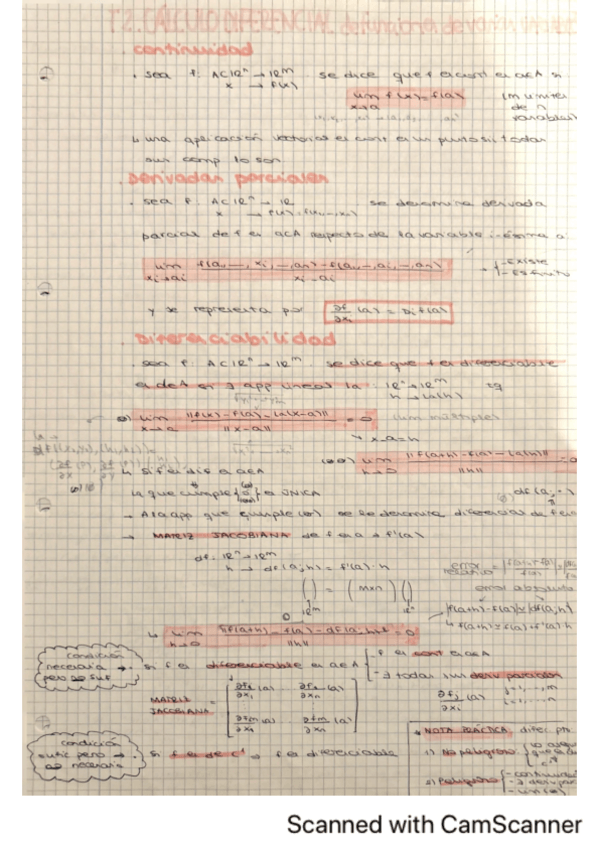 T2. CÁLCULO DIFERENCIAL
continuidad
. sea f: A⊂ℝⁿ → ℝᵐ se dice que f es cont en a∈A si
x → f(x)
lim f(x) = f(a)
x→a
(límites de n variables)
↳ una aplicación vectorial es cont en un punto si todas
sus comp lo son.
. Derivadas parciales
. sea f: A⊂ℝⁿ → ℝ se denomina derivada
x → f(x) = f(x₁, ..., xₙ)
parcial de f en a∈A respecto de la variable i-ésima a:
lim f(a₁, —, xᵢ, —, aₙ) - f(a₁, —, aᵢ, —, aₙ)
xᵢ→aᵢ xᵢ - aᵢ
- EXISTE
- ES FINITO
y se representa por ∂f/∂xᵢ (a) = Dᵢf(a)
Diferenciabilidad
. sea f: A⊂ℝⁿ → ℝᵐ. se dice que f es diferenciable
en a∈A si ∃ app lineal La: ℝⁿ → ℝᵐ tq
h → La(h)
(*) lim ||f(x) - f(a) - La(x-a)|| / ||x-a|| = 0 (lim múltiple)
x→a
x-a=h
(**) lim ||f(a+h) - f(a) - La(h)|| / ||h|| = 0
h→0
↳ Si f es dif en a∈A
La que cumple (*) (**) es ÚNICA
→ A la app que cumple (*) se le denomina diferencial de f en
df(a;·)
→ MATRIZ JACOBIANA de f en a → f'(a)
df: ℝⁿ → ℝᵐ
h → df(a;h) = f'(a)·h
( ) = (m×n) ( )
ℝᵐ ℝⁿ
error relativo =
error absoluto
|f(a+h) - f(a)| ≃ |df(a;h)
↳ f(a+h) ≃ f(a) + f'(a)·h
↳ lim ||f(a+h) - f(a) - df(a;h)|| / ||h|| = 0
h→0
condición necesaria pero no suf → . si f es diferenciable en a∈A
- f es cont en a∈A
- ∃ todas sus deriv parciales
∂fⱼ/∂xᵢ (a) j=1, ..., m
i=1, ..., n
MATRIZ JACOBIANA =
∂f₁/∂x₁ (a) ... ∂f₁/∂xₙ (a)
∂fₘ/∂x₁ (a) ... ∂fₘ/∂xₙ (a)
condición sufic pero no necesaria → . si f es de C¹ → f es diferenciable
NOTA PRÁCTICA difer. pto.
1) No peligroso
2) Peligroso
- continuidad
Scanned with CamScanner